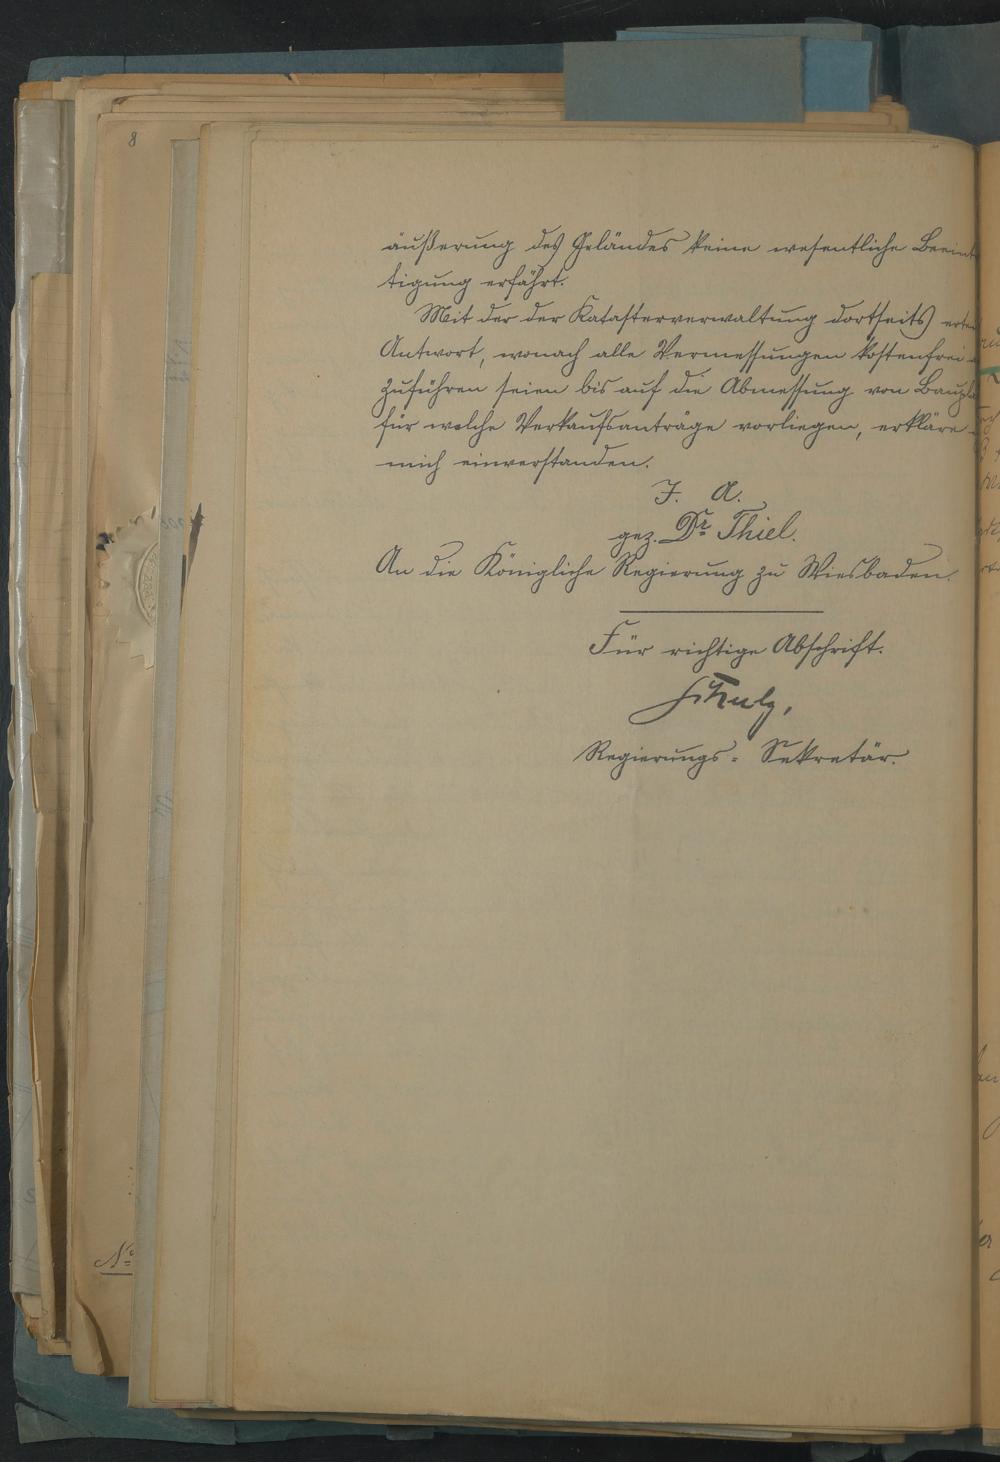 8
äußerung des Geländes keine wesentliche Beeint
tigung erfährt.
Mit der der Katasterverwaltung dortseits erte
Antwort, wonach alle Vermessungen kostenfrei
zuführen seien bis auf die Abmessung von Baupla
für welche Verkaufsanträge vorliegen, erkläre
mich einverstanden.
I. A.
gez. Dr. Thiel.
An die Königliche Regierung zu Wiesbaden.
Für richtige Abschrift.
Schulz,
Regierungs-Sekretär.
No